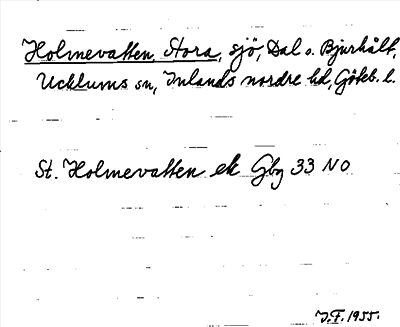 Holmevatten, Stora, sjö, Dal o. Bjurhült,
Ucklums sn, Inlands nordre hd, Göteb. l.
St. Holmevatten ek Gbg 33 NO
J.F. 1955.